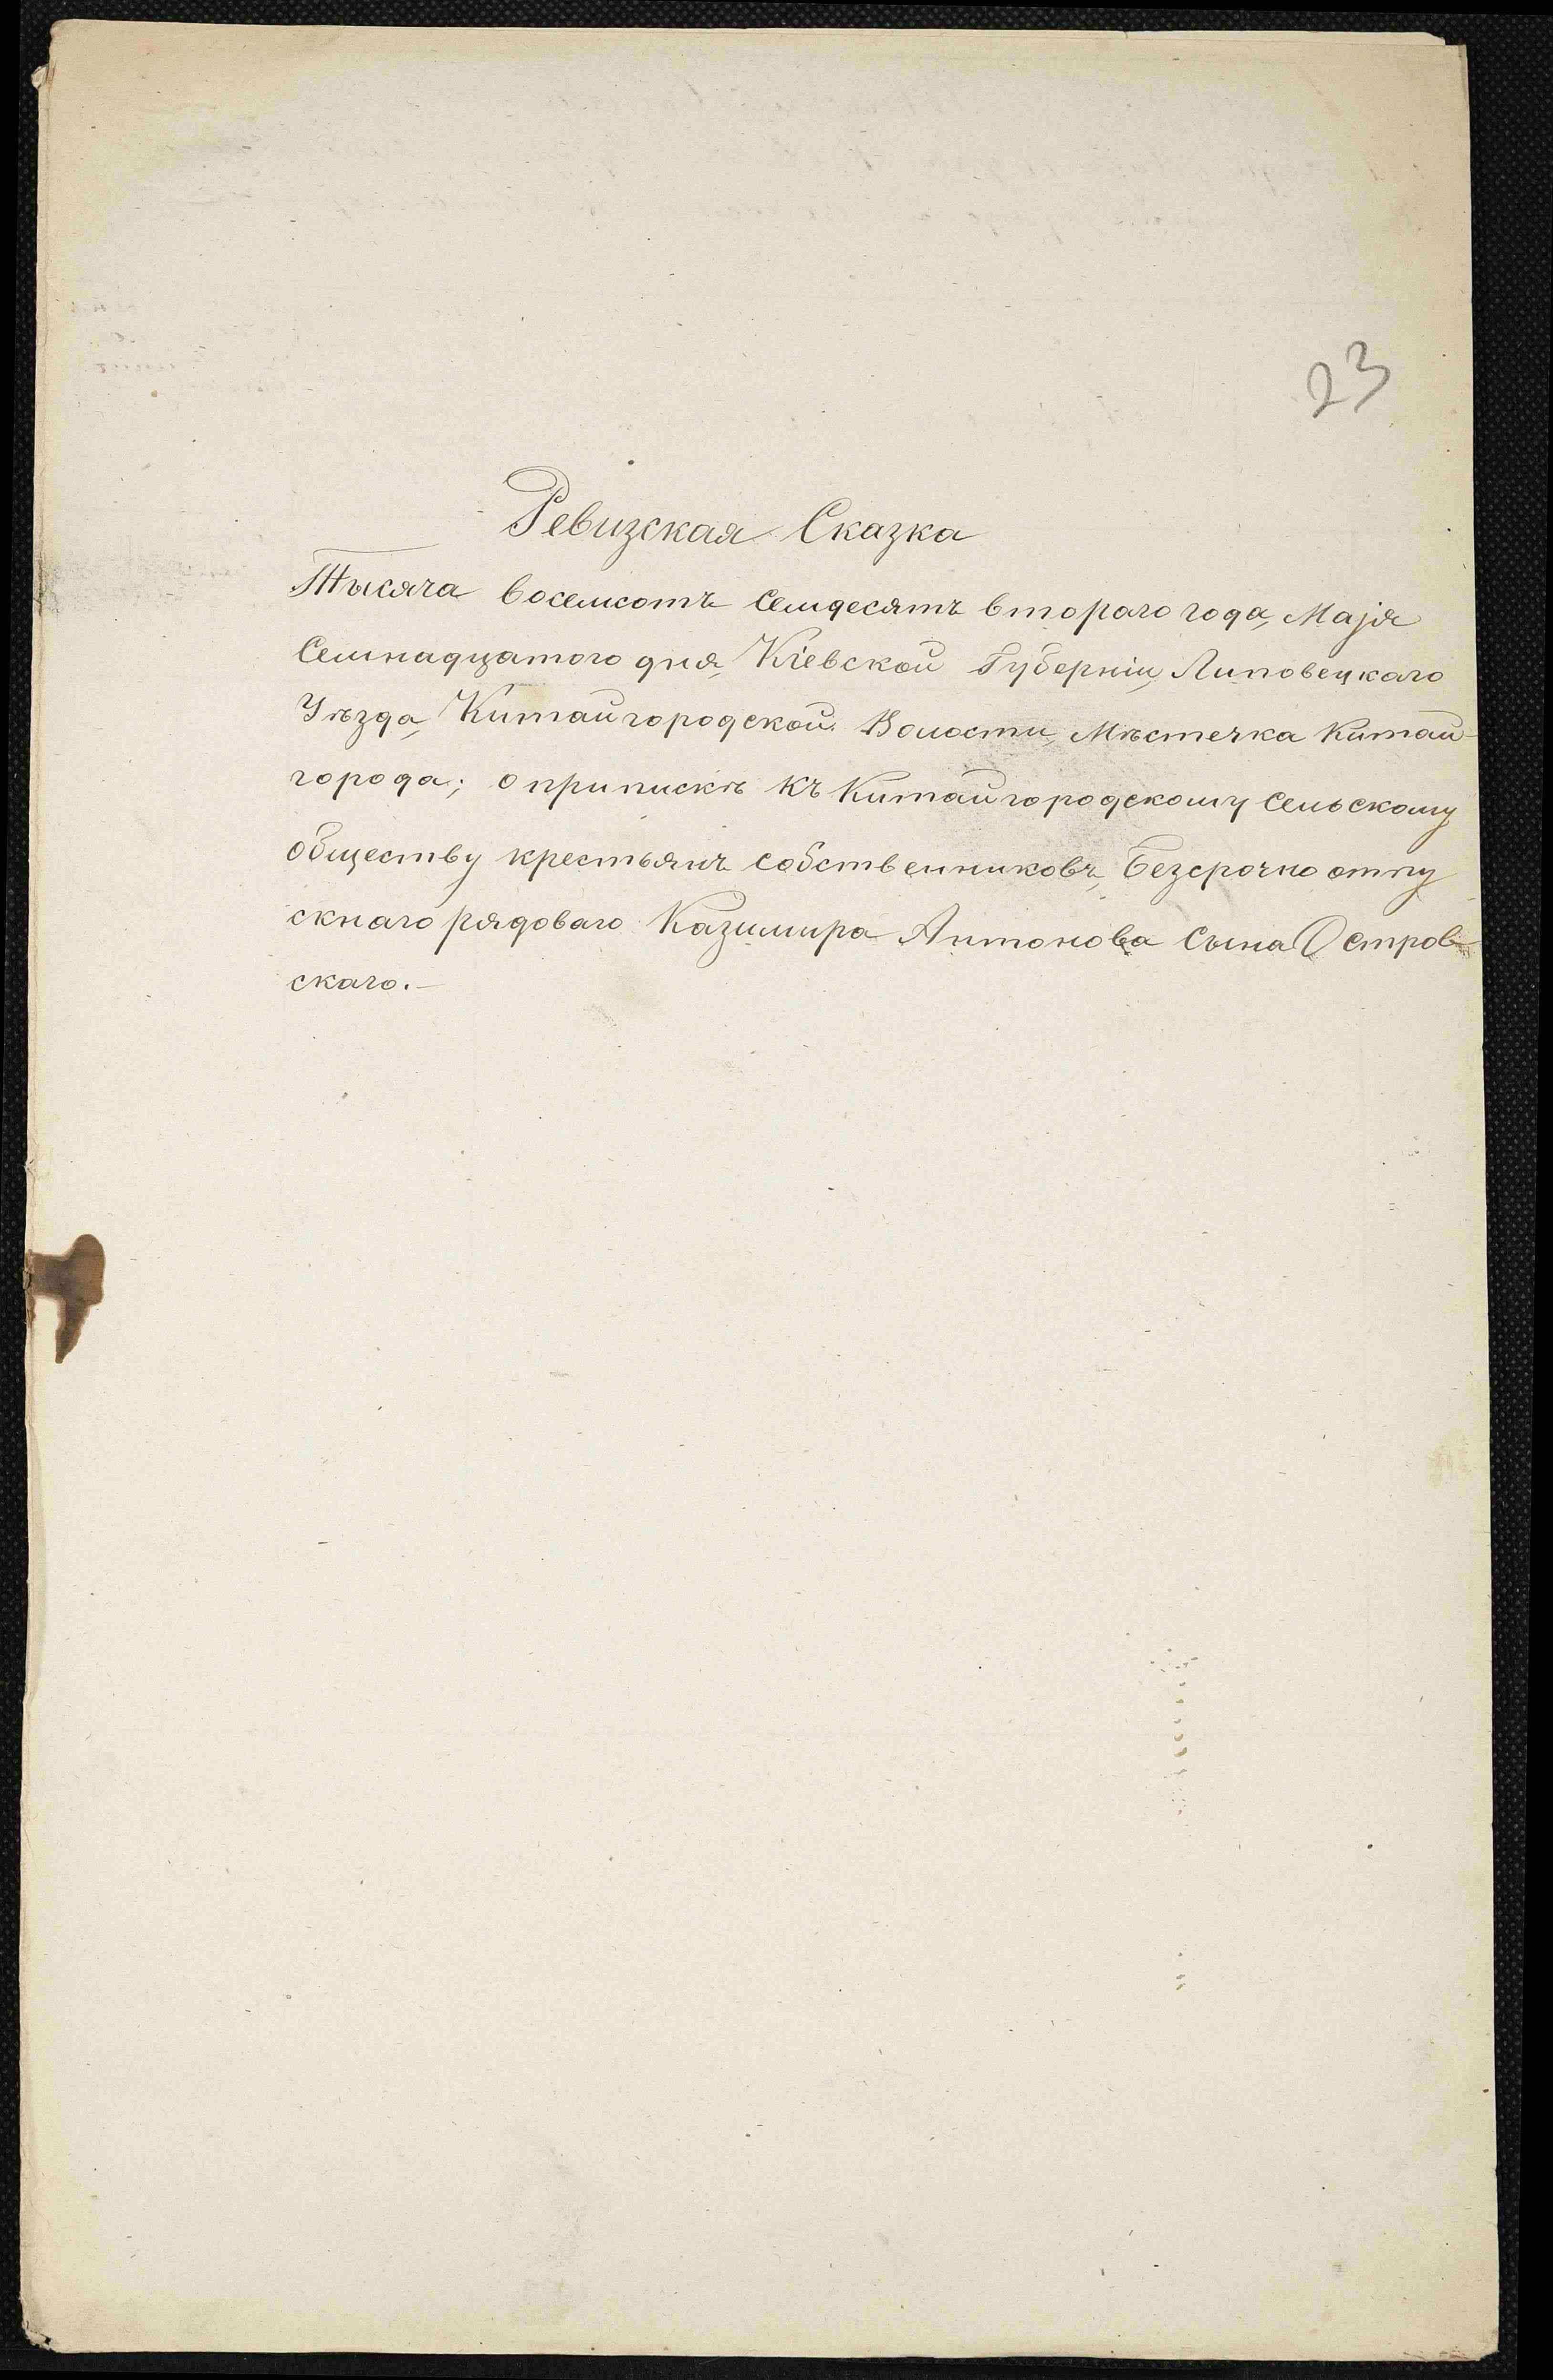 23
Ревизская Сказка
Тысяча восемсотъ семдесятъ втораго года, Маія
Семнадцатого дня, Кіевской Губерніи, Липовецкаго
Уѣзда, Китайгородской Волости, Мѣстечка Китай-
города; о припискѣ къ Китайгородскому Сельскому
обществу крестьянъ собственниковъ, Безсрочно отпу
скнаго рядоваго Казимира Антонова Сына Остров-
скаго.-